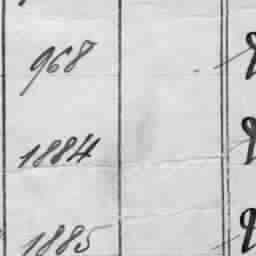 968
1884
1885